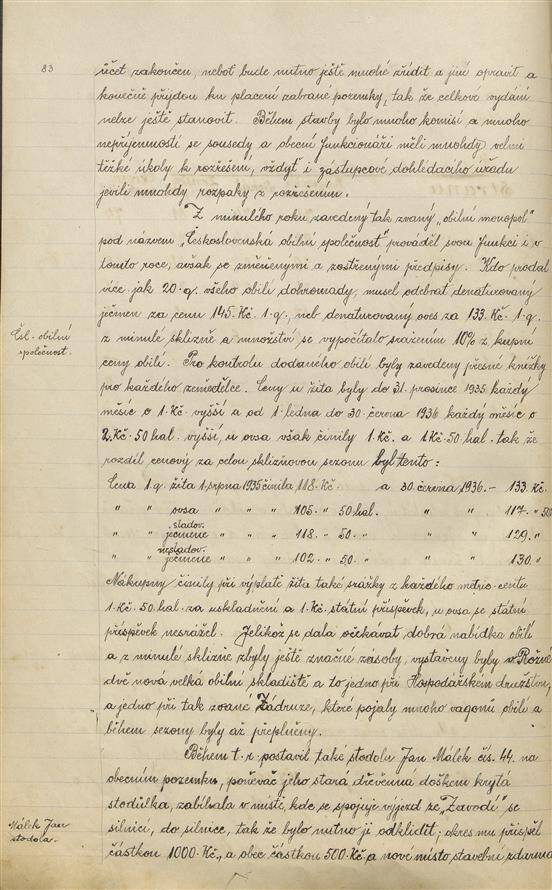 83
účet zakončen, neboť bude nutno ještě mnohé zříditi a jiné opravit a
konečně přijdou ku placení zabrané pozemky, tak že celkové vydání
nelze ještě stanovit. Během stavby bylo mnoho komisí a mnoho
nepříjemností se sousedy a obecní funkcionáři měli mnohdy velmi
těžké úkoly k rozřešení, vždyť i zástupcové dohlédacího úřadu
jevili mnohdy rozpaky z rozřešením.
Z minulého roku zavedený tak zvaný „obilní monopol"
pod názvem „Československá obilní společnost" prováděl svou funkci i v
tomto roce, avšak se změněnými a zostřenými předpisy. Kdo prodal
více jak 20 q. všeho obilí dohromady, musel odebrat denaturovaný
ječmen za cenu 145 Kč. 1 q., neb denaturovaný oves za 133 Kč. 1 q.
Čsl. obilní
společnost.
z minulé sklizně a množství se vypočítalo sražením 10% z kupní
ceny obilí. Pro kontrolu dodaného obilí byly zavedeny přesné knížky
pro každého zemědělce. Ceny u žita byly do 31. prosince 1935 každý
měsíc o 1 Kč. vyšší a od 1 ledna do 30. června 1936 každý měsíc o
2 Kč. 50 hal. vyšší, u ovsa však činily 1 Kč. a 1 Kč. 50 hal. tak že
rozdíl cenový za celou sklizňovou sezonu byl tento:
Cena 1 q. žita 1. srpna 1935 činila 118. Kč. a 30. června 1936. – 133 Kč.
" " ovsa " " " 105. " 50 hal. " " 117. " 50
" " sladov. ječmene " " " 118. " 50. " " " 129. "
" " nesladov. ječmene " " " 102. " 50. " " " 130. "
Nákupny činily při výplatě žita také srážky z každého metric. centu
1 Kč. 50 hal. za uskladnění a 1 Kč. státní příspěvek, u ovsa se státní
příspěvek nesrážel. Jelikož se dala očekávat dobrá nabídka obilí
a z minulé sklizně zbyly ještě značné zásoby, vystavěny byly v Rožné
dvě nová velká obilní skladiště a to jedno při Hospodářském družstvu,
a jedno při tak zvané Zádruze, které pojaly mnoho vagonů obilí a
během sezony byly až přeplněny.
Během t. r. postavil také stodolu Jan Málek čís. 44. na
obecním pozemku, poněvač jeho stará dřevěná došken krytá
stodůlka, zabíhala v místě kde se spojuje výjezd ze „Závodí" se
Málek Jan
stodola.
silnicí, do silnice, tak že bylo nutno ji odklidit; okres mu přispěl
částkou 1000 Kč., a obec částkou 500 Kč. a nové místo stavební zdarma